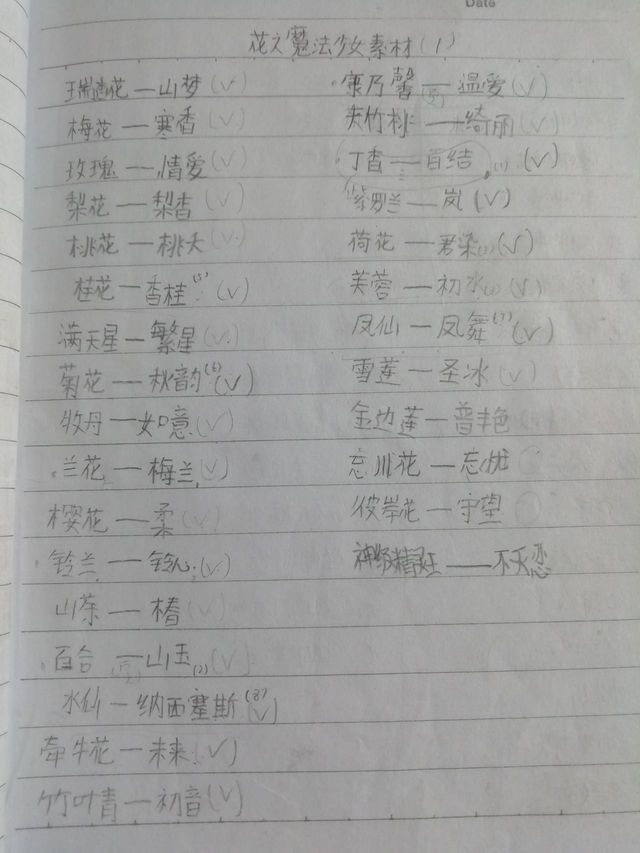 Date
花之魔法少女素材(1)
瑞香花—山梦(V)
梅花—寒香(V)
玫瑰—情爱(V)
梨花—梨香(V)
桃花—桃夭(V)
桂花—香桂(5)(V)
满天星—繁星(V)
菊花—秋韵(6)(V)
牧丹—如意(V)
兰花—梅兰(V)
樱花—柔(V)
铃兰—铃心(V)
山茶—椿(V)
百合—山玉(2)(V)
水仙—纳西塞斯(8)(V)
牵牛花—未来(V)
竹叶青—初音(V)
康乃馨—温爱(V)
夹竹桃—绮丽(V)
丁香—百结(1)(V)
紫罗兰—岚(V)
荷花—君染(V)
芙蓉—初水(V)
凤仙—凤舞(7)(V)
雪莲—圣冰(V)
金边莲—普丰艳
忘川花—忘忧
彼岸花—守望
神级精灵王—不灭恋